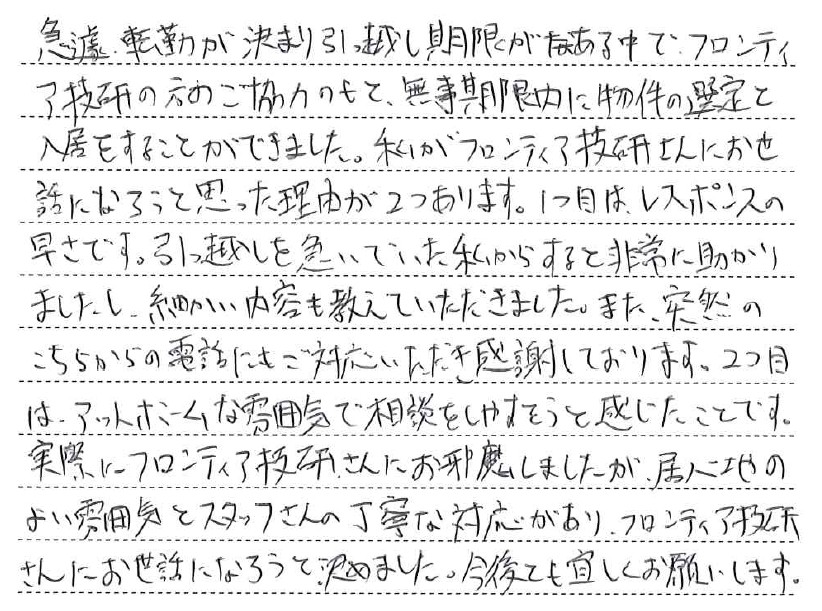 急遽、転勤が決まり引っ越し期限がある中で、フロンティ
ア技研の方のご協力のもと、無事期限内に物件の選定と
入居をすることができました。私がフロンティア技研さんにお世
話になろうと思った理由が2つあります。1つ目は、レスポンスの
早さです。引っ越しを急いでいた私からすると非常に助かり
ましたし、細かい内容も教えていただきました。また、突然の
こちらからの電話にもご対応いただき感謝しております。2つ目
は、アットホームな雰囲気で相談をしやすそうと感じたことです。
実際にフロンティア技研さんにお邪魔しましたが、居心地の
よい雰囲気とスタッフさんの丁寧な対応があり、フロンティア技研
さんにお世話になろうと決めました。今後とも宜しくお願いします。